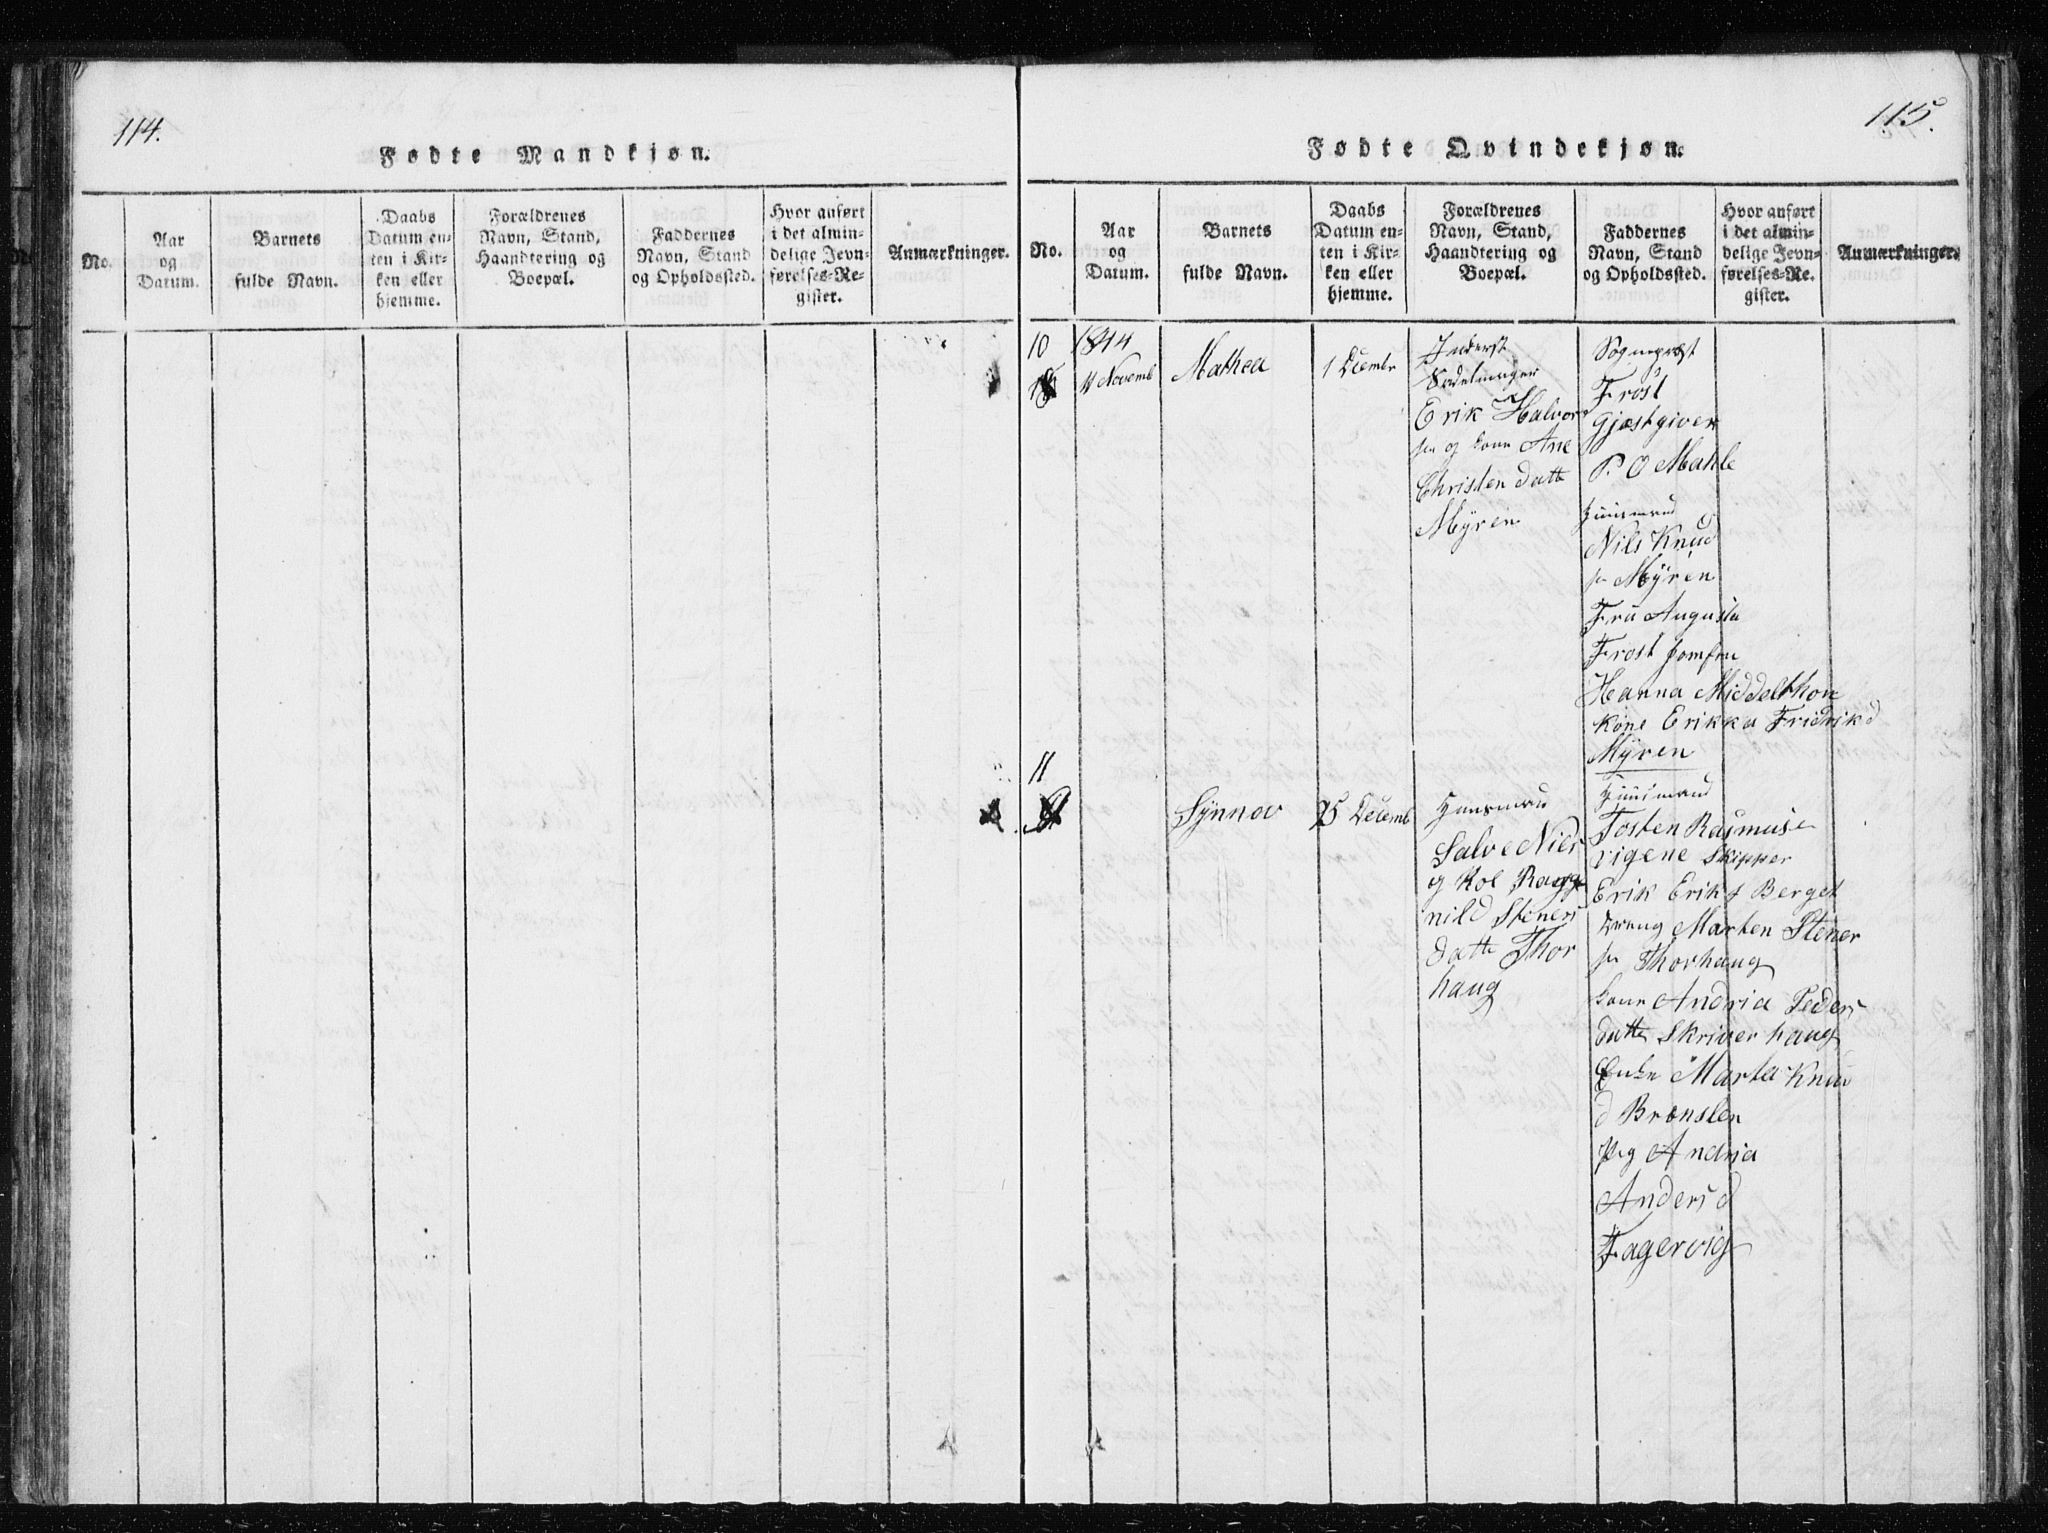 114.
Fødte Mandkjøn.
No.
Aar
og
Datum.
Barnets
fulde Navn.
Daabs
Datum en-
ten i Kir-
ken eller
hjemme.
Forældrenes
Navn, Stand,
Haandtering og
Boepæl.
Faddernes
Navn, Stand
og Opholdssted.
Hvor anført
i det almin-
delige Jevn-
førelses-Re-
gister.
Anmærkninger.
115.
Fødte Qvindekjøn.
No.
Aar
og
Datum.
Barnets
fulde Navn.
Daabs
Datum en-
ten i Kir-
ken eller
hjemme.
Forældrenes
Navn, Stand,
Haandtering og
Boepæl.
Faddernes
Navn, Stand
og Opholdssted.
Hvor anført
i det almin-
delige Jevn-
førelses-Re-
gister.
Anmærkninger.
10
1844
11 Novemb
Mathea
1 Decembr
Inderst
Sadelmager
Erik Halvor
sen og kone Ane
Christen datt
Myren
Sognepræst
Frost
Gjæstgiver
P. O Mahle
Huusmand
Nils Knud
sn Myren
Fru Augusta
Frost Jomfru
Hanna Middelthon
kone Erikka Fridrikd
Myren
11
Synnov
25 Decemb
Huusman
Salve Niels
og Kol Ragge
nild Steners
datte Thor
haug
Huusmand
Tosten Rasmus
vigene Skipper
Erik Eriks Berget
Dreng Marten Stener
sn Thorhaug
kone Andria Peders
datte Skriver haug
Enke Marta Knu
d Brønslen
Pig Andria
Anders d
Fagervig